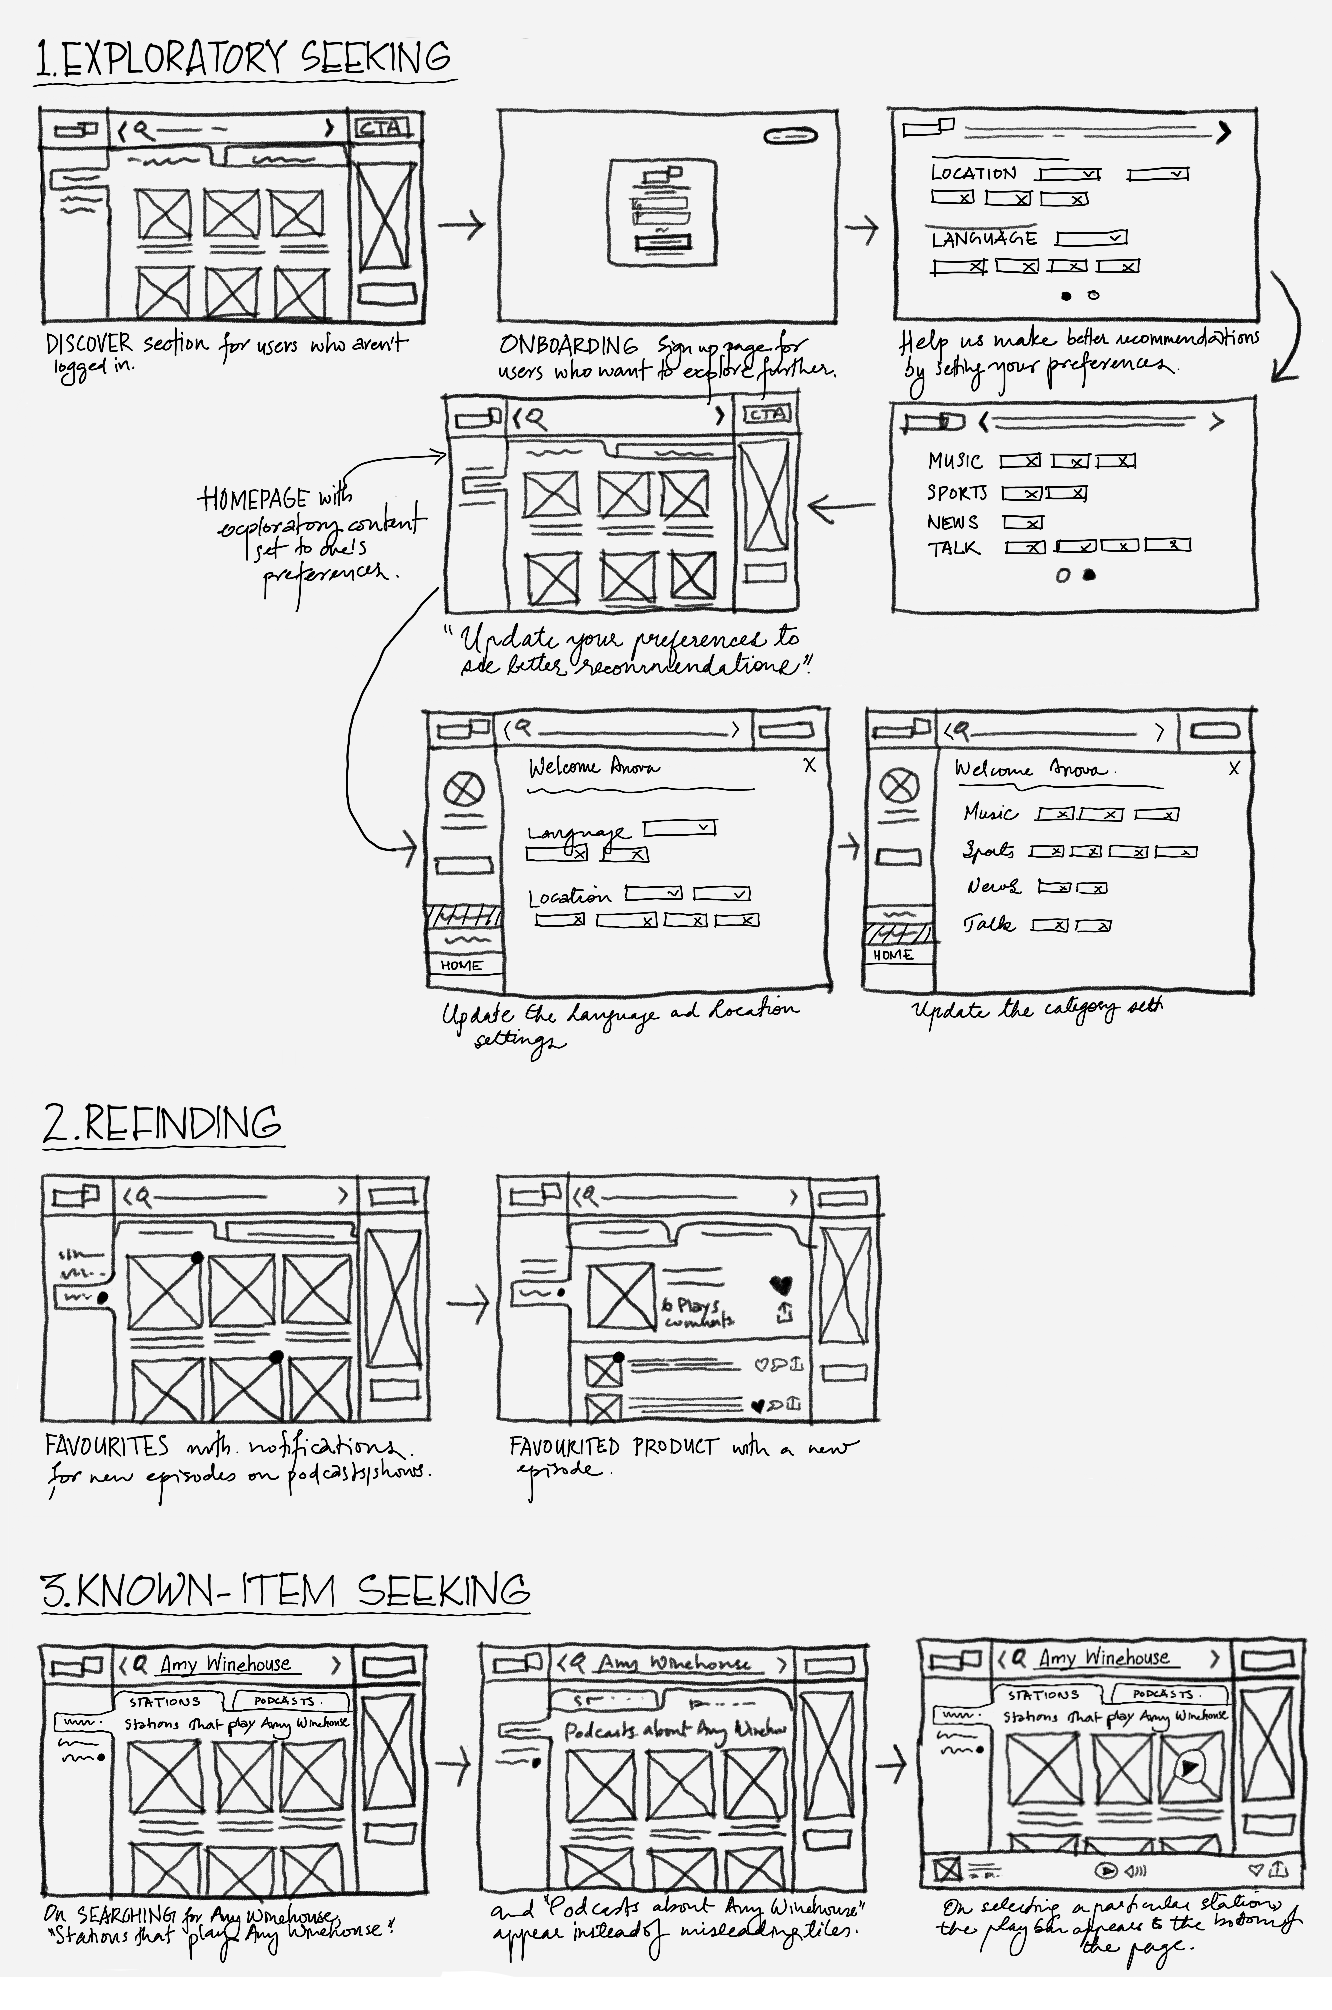 1. EXPLORATORY SEEKING
CTA
DISCOVER section for users who aren't
logged in.
ONBOARDING Sign up page for
users who want to explore further.
LOCATION
LANGUAGE
Help us make better recommendations
by setting your preferences.
MUSIC
SPORTS
NEWS
TALK
CTA
HOMEPAGE with
exploratory content
set to one's
preferences.
"Update your preferences to
see better recommendations".
Welcome Anova
X
Language
Location
HOME
Update the Language and Location
settings
Welcome Anova.
X
Music
Sports
News
Talk
HOME
Update the category
2. REFINDING
FAVOURITES with notifications.
for new episodes on podcasts/shows.
6 Plays
FAVOURITED PRODUCT with a new
episode.
3. KNOWN-ITEM SEEKING
Amy Winehouse
STATIONS
PODCASTS.
Stations that play Amy Winehouse
On SEARCHING for Amy Winehouse,
"Stations that play Amy Winehouse"
Amy Winehouse
Podcasts about Amy
and "Podcasts about Amy Winehouse"
appear instead of misleading tiles.
Amy Winehouse
STATIONS
PODCASTS.
Stations that play Amy Winehouse
On selecting a particular station,
the play bar appears to the bottom of
the page.